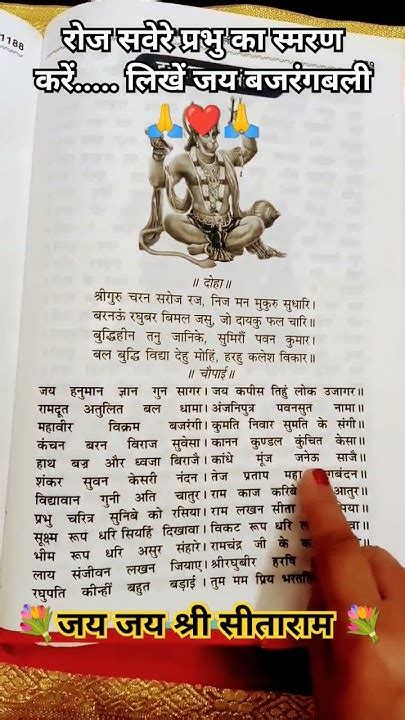 1188
रोज सवेरे प्रभु का स्मरण
करें..... लिखें जय बजरंगबली
🙏❤️🙏
॥ दोहा॥
श्रीगुरु चरन सरोज रज, निज मन मुकुरु सुधारि।
बरनऊं रघुबर बिमल जसु, जो दायकु फल चारि॥
बुद्धिहीन तनु जानिके, सुमिरौं पवन कुमार।
बल बुद्धि विद्या देहु मोहिं, हरहु कलेश विकार॥
॥ चौपाई॥
जय हनुमान ज्ञान गुन सागर। जय कपीस तिहुं लोक उजागर॥
रामदूत अतुलित बल धामा। अंजनिपुत्र पवनसुत नामा॥
महावीर विक्रम बजरंगी। कुमति निवार सुमति के संगी॥
कंचन बरन विराज सुवेसा। कानन कुण्डल कुंचित केसा॥
हाथ बज्र और ध्वजा बिराजै। कांधे मूंज जनेऊ साजै॥
शंकर सुवन केसरी नंदन। तेज प्रताप महा
विद्यावान गुनी अति चातुर। राम काज करिबे आतुर॥
प्रभु चरित्र सुनिबे को रसिया। राम लखन सीता
सूक्ष्म रूप धरि सियहिं दिखावा। विकट रूप धरि
भीम रूप धरि असुर संहारे। रामचंद्र जी के
लाय संजीवन लखन जियाए। श्रीरघुबीर हरषि
रघुपति कीन्हीं बहुत बड़ाई। तुम मम प्रिय
💐जय जय श्री सीताराम💐